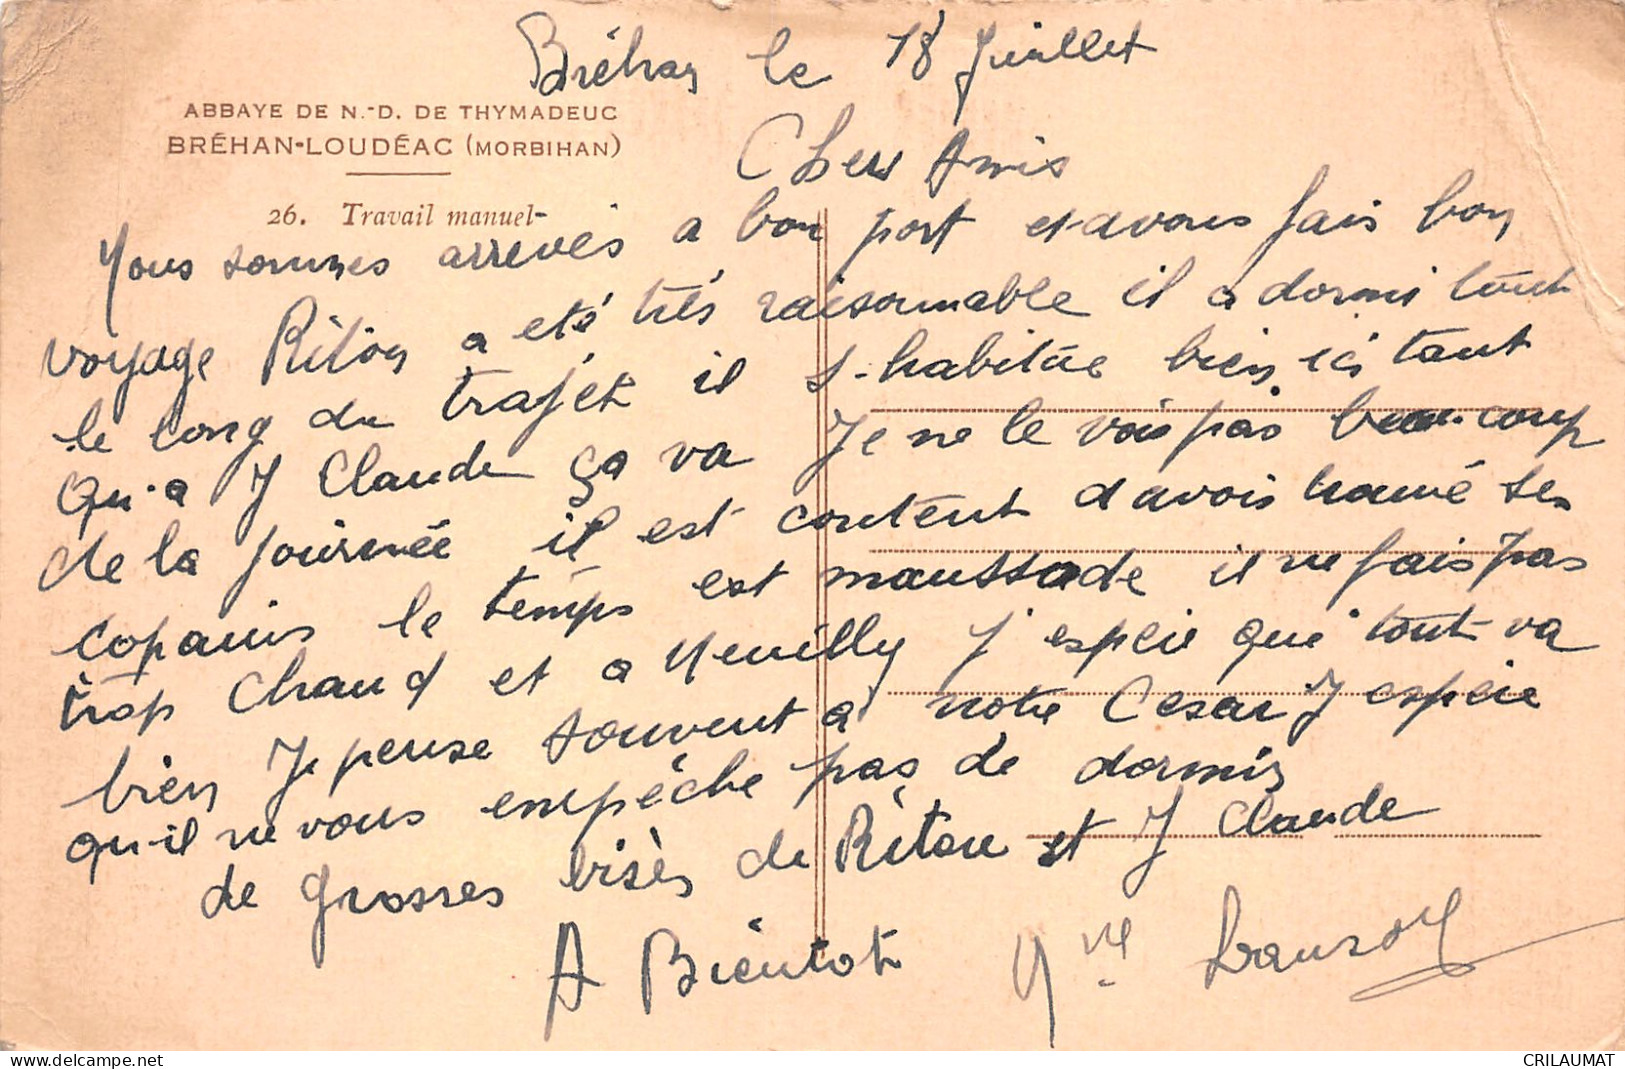 Bréhan le 18 Juillet
ABBAYE DE N.-D. DE THYMADEUC
BRÉHAN-LOUDÉAC (MORBIHAN)
Chers Amis
26. Travail manuel-
Nous sommes arrevés a bon port et avons fais bon
voyage Riton a eté très raisonnable il a dormi tout
le long du trajet il s-habitue bien ici tant
Qu-a J Claude ça va Je ne le vois pas beaucoup
de la journée il est content d avoir trouvé ses
copains le temps est maussade il ne fais pas
trop chaud et a Neuilly J espère que tout va
bien Je pense souvent a notre Cesar J espère
qu-il ne vous empêche pas de dormir
de grosses bises de Riton et J Claude
A Bientot Mme
www.delcampe.net
CRILAUMAT